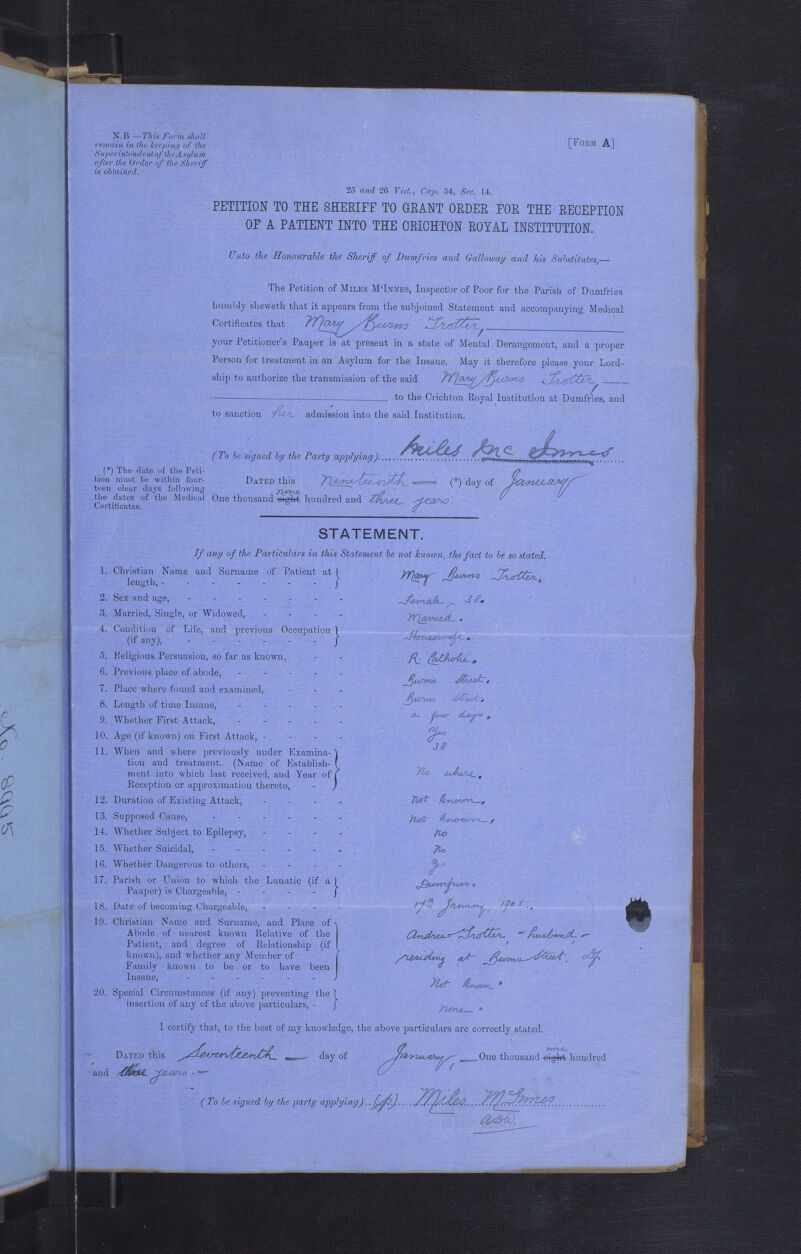 N.B—This Form shall
remain in the keeping of the
Superintendent of the Asylum
after the Order of the Sheriff
is obtained.
[Form A]
25 and 26 Vict., Cap. 54, Sec. 14.
PETITION TO THE SHERIFF TO GRANT ORDER FOR THE RECEPTION
OF A PATIENT INTO THE CRICHTON ROYAL INSTITUTION.
Unto the Honourable the Sheriff of Dumfries and Galloway and his Substitutes,—
The Petition of Miles M'Innes, Inspector of Poor for the Parish of Dumfries
humbly sheweth that it appears from the subjoined Statement and accompanying Medical
Certificates that Mary Burns Trotter,
your Petitioner's Pauper is at present in a state of Mental Derangement, and a proper
Person for treatment in an Asylum for the Insane. May it therefore please your Lord-
ship to authorize the transmission of the said Mary Burns Trotter,
to the Crichton Royal Institution at Dumfries, and
to sanction her admission into the said Institution.
(To be signed by the Party applying) Miles Mc Innes
(*) The date of the Peti-
tion must be within four-
teen clear days following
the dates of the Medical
Certificates.
Dated this Nineteenth (*) day of January
One thousand eight nine hundred and three years
STATEMENT.
If any of the Particulars in this Statement be not known, the fact to be so stated.
1. Christian Name and Surname of Patient at
length, - Mary Burns Trotter.
2. Sex and age, - Female - 38.
3. Married, Single, or Widowed, - Married.
4. Condition of Life, and previous Occupation
(if any), - Housewife.
5. Religious Persuasion, so far as known, - R. Catholic.
6. Previous place of abode, - Burns Street.
7. Place where found and examined, - Burns Street.
8. Length of time Insane, - a few days.
9. Whether First Attack, - Yes
10. Age (if known) on First Attack, - 38
11. When and where previously under Examina-
tion and treatment. (Name of Establish-
ment into which last received, and Year of
Reception or approximation thereto, - No where.
12. Duration of Existing Attack, - Not known,
13. Supposed Cause, - Not known,
14. Whether Subject to Epilepsy, - No
15. Whether Suicidal, - No
16. Whether Dangerous to others, -
17. Parish or Union to which the Lunatic (if a
Pauper) is Chargeable, - Dumfries.
18. Date of becoming Chargeable, - 17th January, 1903.
19. Christian Name and Surname, and Place of
Abode of nearest known Relative of the
Patient, and degree of Relationship (if
known), and whether any Member of
Family known to be or to have been
Insane, - Andrew Trotter, - husband, -
residing at Burns Street.
Not known
20. Special Circumstances (if any) preventing the
insertion of any of the above particulars, - None
I certify that, to the best of my knowledge, the above particulars are correctly stated.
Dated this Seventeenth day of January, One thousand eight nine hundred
and three years.
(To be signed by the party applying) Miles McInnes
No: 8995